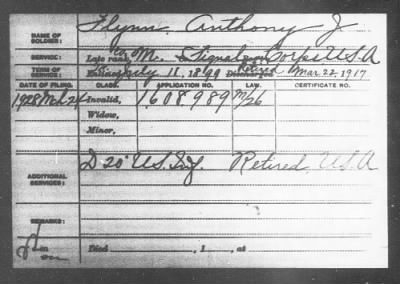 NAME OF SOLDIER: Flynn Anthony J
SERVICE: Late rank, Co M. Signal Corps U.S.A
TERM OF SERVICE: Enlisted July 11, 1899 Discharged Retired Mar 22, 1917
DATE OF FILING. CLASS. APPLICATION NO. LAW. CERTIFICATE NO.
1928 Mch 24 Invalid, 1608989 M/26
Widow,
Minor,
ADDITIONAL SERVICES: D 20" U.S. Inf. Retired, U.S.A
REMARKS:
Died , 1 , at